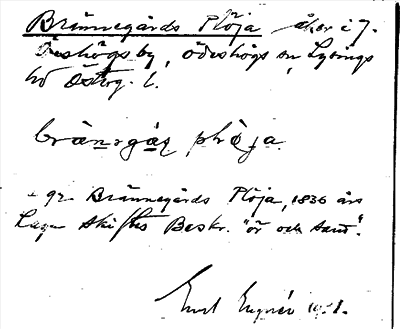 Brännegårds Plöja åker i 7.
Ödeshögs by, Ödeshögs sn, Lysings
hd Östog. l.
bränegåz plöja
gr Brännegårds Plöja, 1836 års
Laga Skiftes Beskr. "ör och sand".
Emt